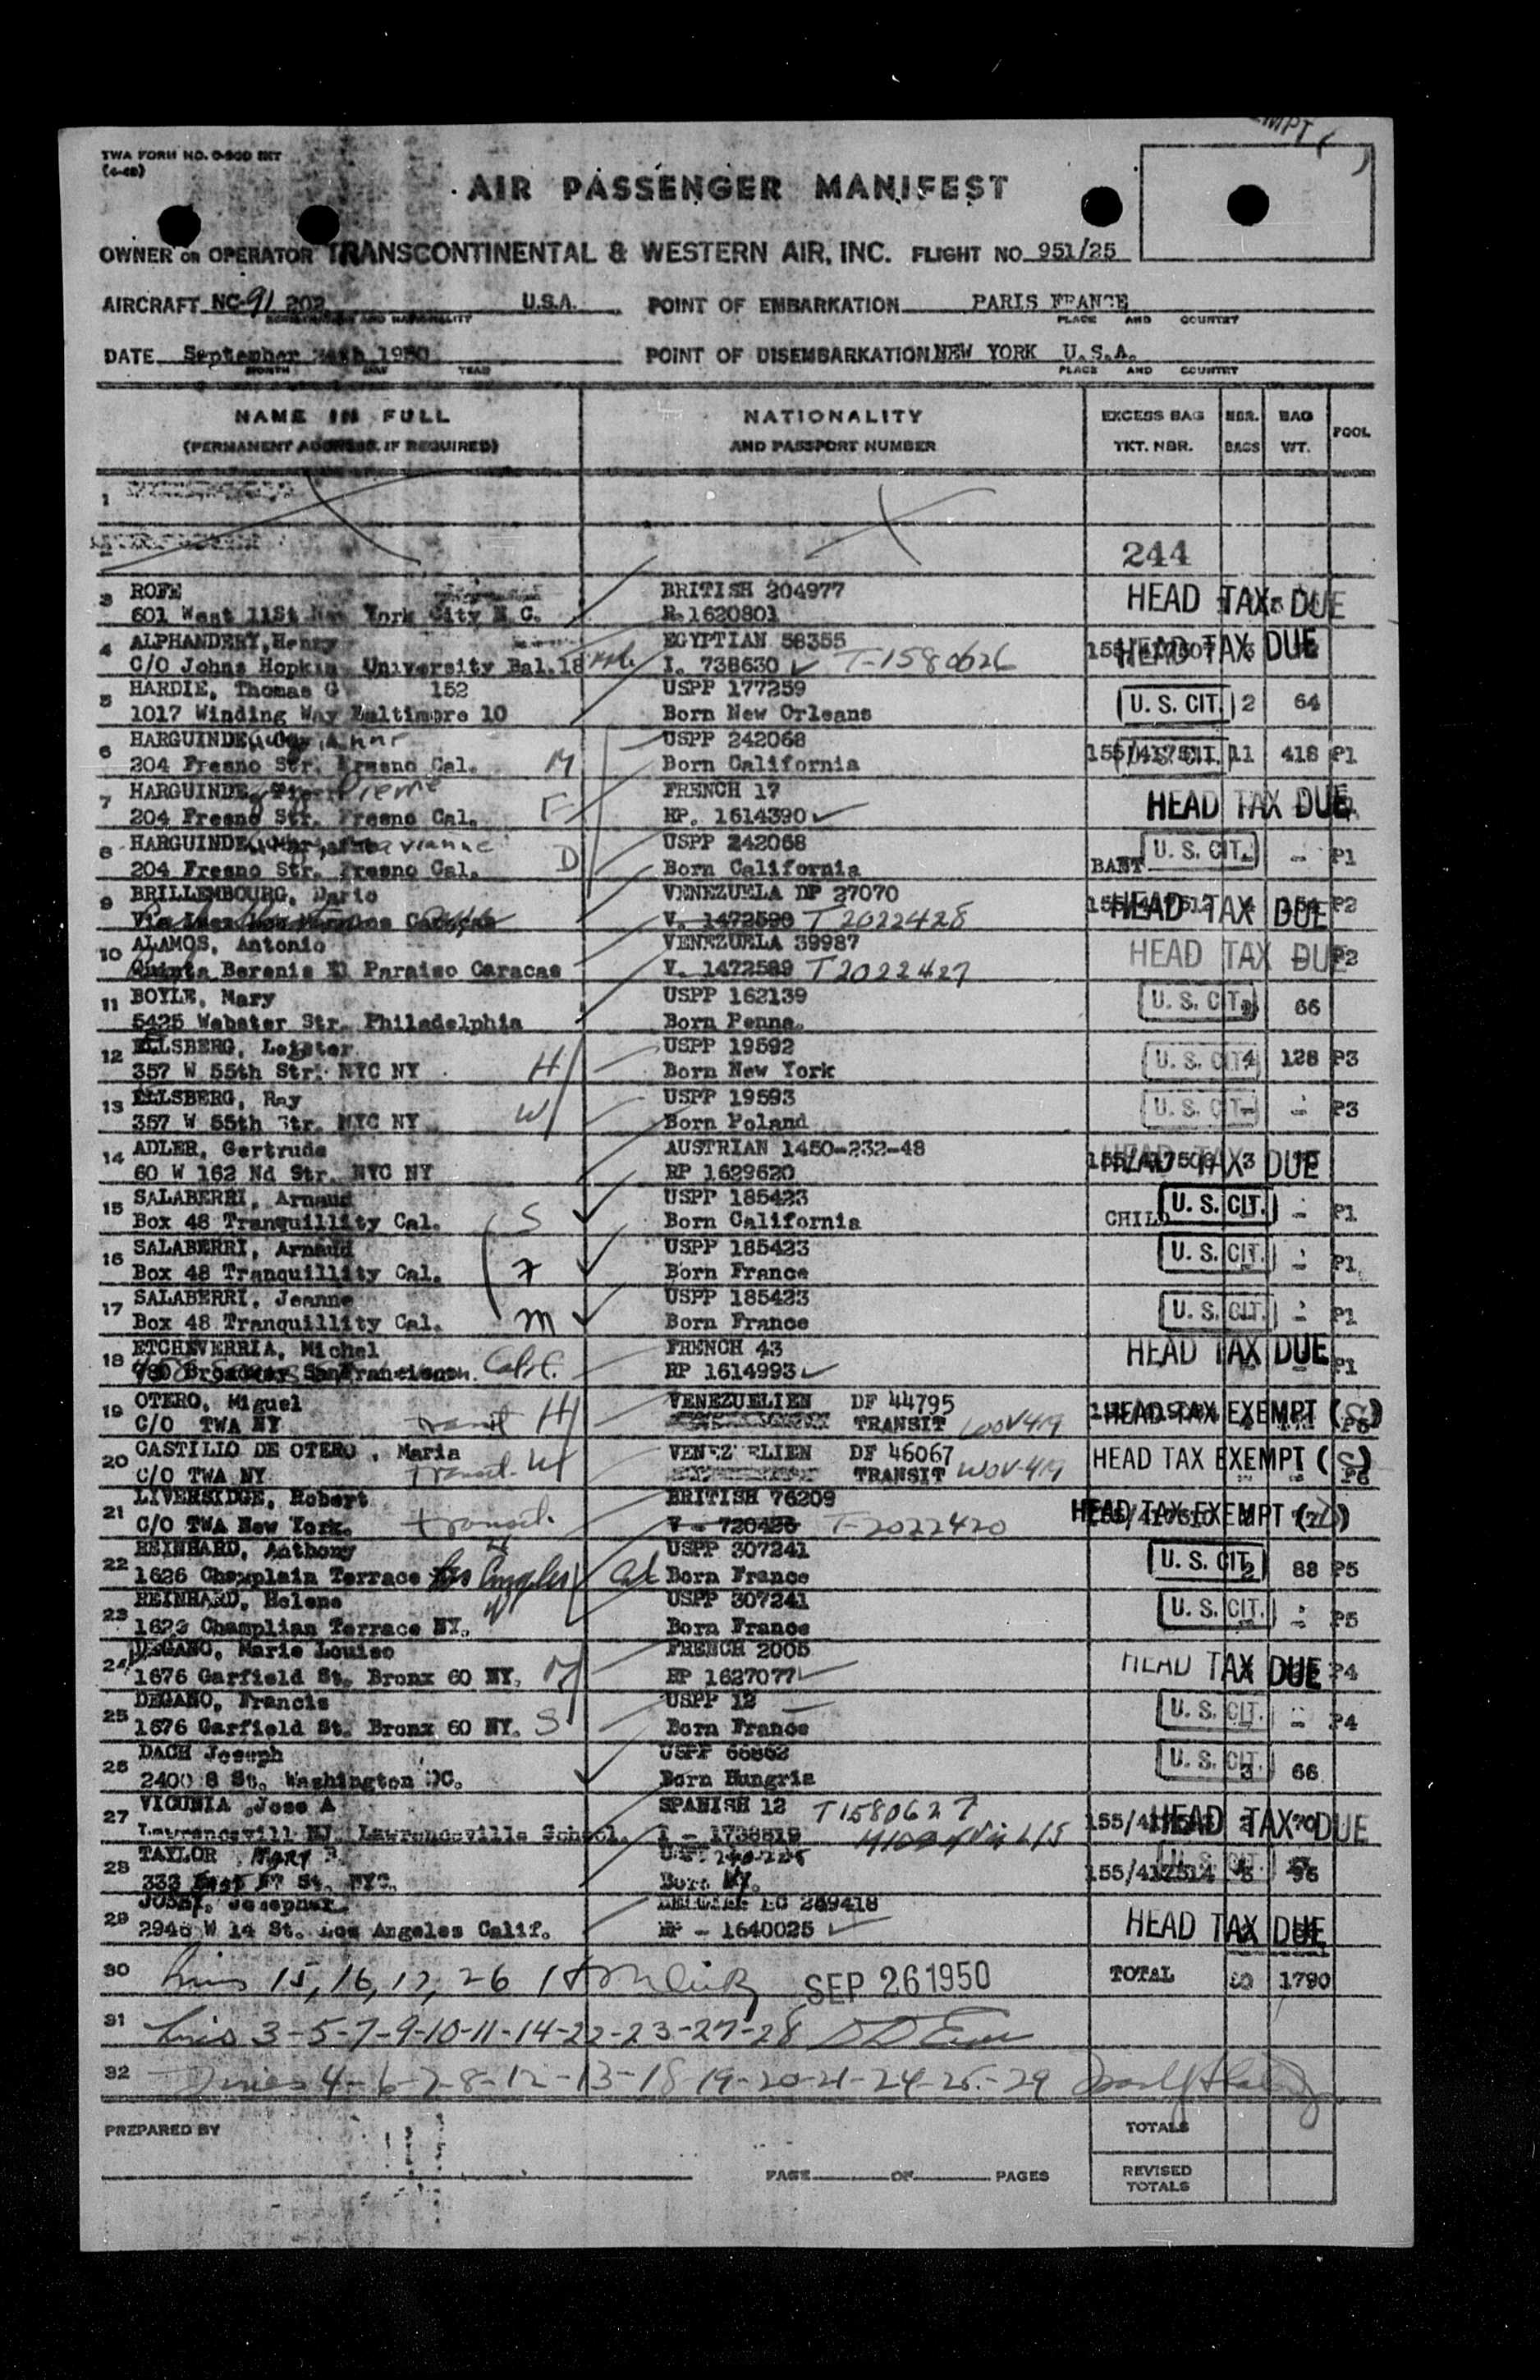 TWA FORM NO.
AIR PASSENGER MANIFEST
OWNER OR OPERATOR TRANSCONTINENTAL & WESTERN AIR, INC. FLIGHT NO. 951/25
AIRCRAFT NC-91 202 U.S.A. POINT OF EMBARKATION PARIS FRANCE
PLACE AND COUNTRY
DATE September 1950 POINT OF DISEMBARKATION NEW YORK U.S.A.
MONTH DAY YEAR PLACE AND COUNTRY
NAME IN FULL NATIONALITY EXCESS BAG NBR. BAG POOL
(PERMANENT ADDRESS IF REQUIRED) AND PASSPORT NUMBER TKT. NBR. BAGS WT.
1
244
3 ROFE BRITISH 204977 HEAD TAX DUE
601 West 11St New York City N.C. R.1620801
4 ALPHANDERY, Henry EGYPTIAN 58355 HEAD TAX DUE
C/O Johns Hopkins University Bal.18 Md. I. 738630 T-1580626
5 HARDIE, Thomas G 152 USPP 177259 U. S. CIT. 2 64
1017 Winding Way Baltimore 10 Born New Orleans
6 USPP 242068 11 418 P1
204 Fresno Str. Fresno Cal. M Born California
7 Pierre FRENCH 17 HEAD TAX DUE
204 Fresno Str. Fresno Cal. F RP. 1614390
8 USPP 242068 U. S. CIT. - P1
204 Fresno Str. Fresno Cal. D Born California
9 BRILLEMBOURG, Dario VENEZUELA DP 27070 HEAD TAX DUE P2
V. 1472590 T2022428
10 ALAMOS, Antonio VENEZUELA 39987 HEAD TAX DUE P2
Quinta Berenis El Paraiso Caracas V. 1472589 T2022427
11 BOYLE, Mary USPP 162139 U. S. CIT. 66
5425 Webster Str. Philadelphia Born Penna.
12 ELLSBERG, USPP 19592 U. S. CIT. 4 128 P3
357 W 55th Str. NYC NY H Born New York
13 ELLSBERG, Ray USPP 19593 U. S. CIT. - P3
357 W 55th Str. NYC NY W Born Poland
14 ADLER, Gertrude AUSTRIAN 1450-232-48 HEAD TAX DUE 3
60 W 162 Nd Str. NYC NY RP 1629620
15 SALABERRI, Arnaud USPP 185423 U. S. CIT. - P1
Box 48 Tranquillity Cal. S Born California CHILD
16 SALABERRI, Arnaud USPP 185423 U. S. CIT. - P1
Box 48 Tranquillity Cal. F Born France
17 SALABERRI, Jeanne USPP 185423 U. S. CIT. - P1
Box 48 Tranquillity Cal. M Born France
18 ETCHEVERRIA, Michel FRENCH 43 HEAD TAX DUE P1
Calif. RP 1614993
19 OTERO, Miguel VENEZUELIEN DF 44795 HEAD TAX EXEMPT
C/O TWA NY transit H TRANSIT P6
20 CASTILLO DE OTERO, Maria VENEZUELIEN DF 46067 HEAD TAX EXEMPT
C/O TWA NY transit W TRANSIT P6
21 LIVERSIDGE, Robert BRITISH 76209 HEAD TAX EXEMPT
C/O TWA New York. transit. V - 720426 T-2022420
22 REINHARD, Anthony H USPP 307241 U. S. CIT. 2 88 P5
1626 Champlain Terrace Los Angeles Cal Born France
23 REINHARD, Helene W USPP 307241 U. S. CIT. - P5
Champlian Terrace NY. Born France
24 DEGANO, Marie Louise FRENCH 2005 HEAD TAX DUE P4
1676 Garfield St. Bronx 60 NY. M RP 1627077
25 DEGANO, Francis USPP 12 U. S. CIT. - P4
1676 Garfield St. Bronx 60 NY. S Born France
26 DACH Joseph USPP U. S. CIT. 3 66
2400 St. Washington DC. Born Hungria
27 VICUNIA, Jose A SPANISH 12 T1580627 HEAD TAX DUE
Lawrenceville School. I -
28 TAYLOR, Mary
333 St. NYC. Born 155/417514
29 HEAD TAX DUE
2946 W 14 St. Los Angeles Calif. RP - 1640025
30 Lines 15, 16, 17, 26 SEP 26 1950 TOTAL 1790
31 Lines 3-5-7-9-10-11-14-22-23-27-28
32 Lines 4-6-7-8-12-13-18-19-20-21-24-25-29
PREPARED BY TOTALS
PAGE OF PAGES REVISED
TOTALS